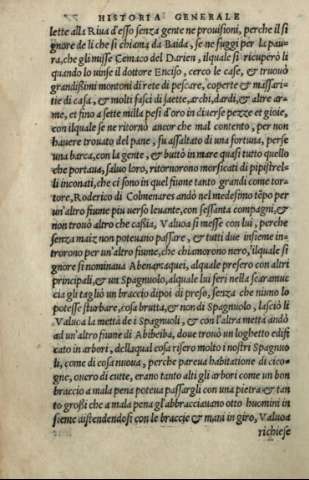 HISTORIA GENERALE
lette alla Riua d'esso senza gente ne prouisioni, perche il si
gnore de li che si chiama da Baida, se ne fuggi per la pau-
ra, che gli misse Cemaco del Darien, ilquale si ricuperò li
quando lo uinse il dottore Enciso, cerco le case, & trouò
grandissimi montoni di rete di pescare, coperte & massari-
tie di casa, & molti fasci di saette, archi, dardi, & altre ar-
me, et fino a sette milla pesi d'oro in diuerse pezze et gioie,
con ilquale se ne ritornò ancor che mal contento, per non
hauere trouato del pane, fu assaltato di una fortuna, perse
una barca, con la gente, & buttò in mare quasi tutto quello
che portaua, saluo loro, ritornorono morsicati di pipistrel-
li inconati, che ci sono in quel fiume tanto grandi come tor-
tore, Roderico di Colmenares andò nel medesimo tẽpo per
un'altro fiume piu uerso leuante, con sessanta compagni, &
non trouò altro che cassia, Valuoa si messe con lui, perche
senza maiz non poteuano passare, & tutti due insieme in-
trorono per un'altro fiume, che chiamorono nero, ilquale si
gnore si nominaua Abenamaquei, alquale presero con altri
principali, & un Spagnuolo, alquale lui feri nella scaramuc
cia gli tagliò un braccio dipoi di preso, senza che niuno lo
potesse sturbare, cosa brutta, & non di Spagnuolo, lasciò li
Valuoa la metta de i Spagnuoli, & con l'altra metta andò
ad un'altro fiume di Abibeiba, doue trouò un loghetto edifi
cato in arbori, dellaqual cosa risero molto i nostri Spagnuo
li, come di cosa nuoua, perche pareua habitatione di cico-
gne, ouero di cutte, erano tanto alti gli arbori come un bon
braccio a mala pena poteua passargli con una pietra & tan
to grossi che a mala pena gl'abbracciauano otto huomini in
sieme distendendosi con le braccie & mani in giro, Valuoa
richiese